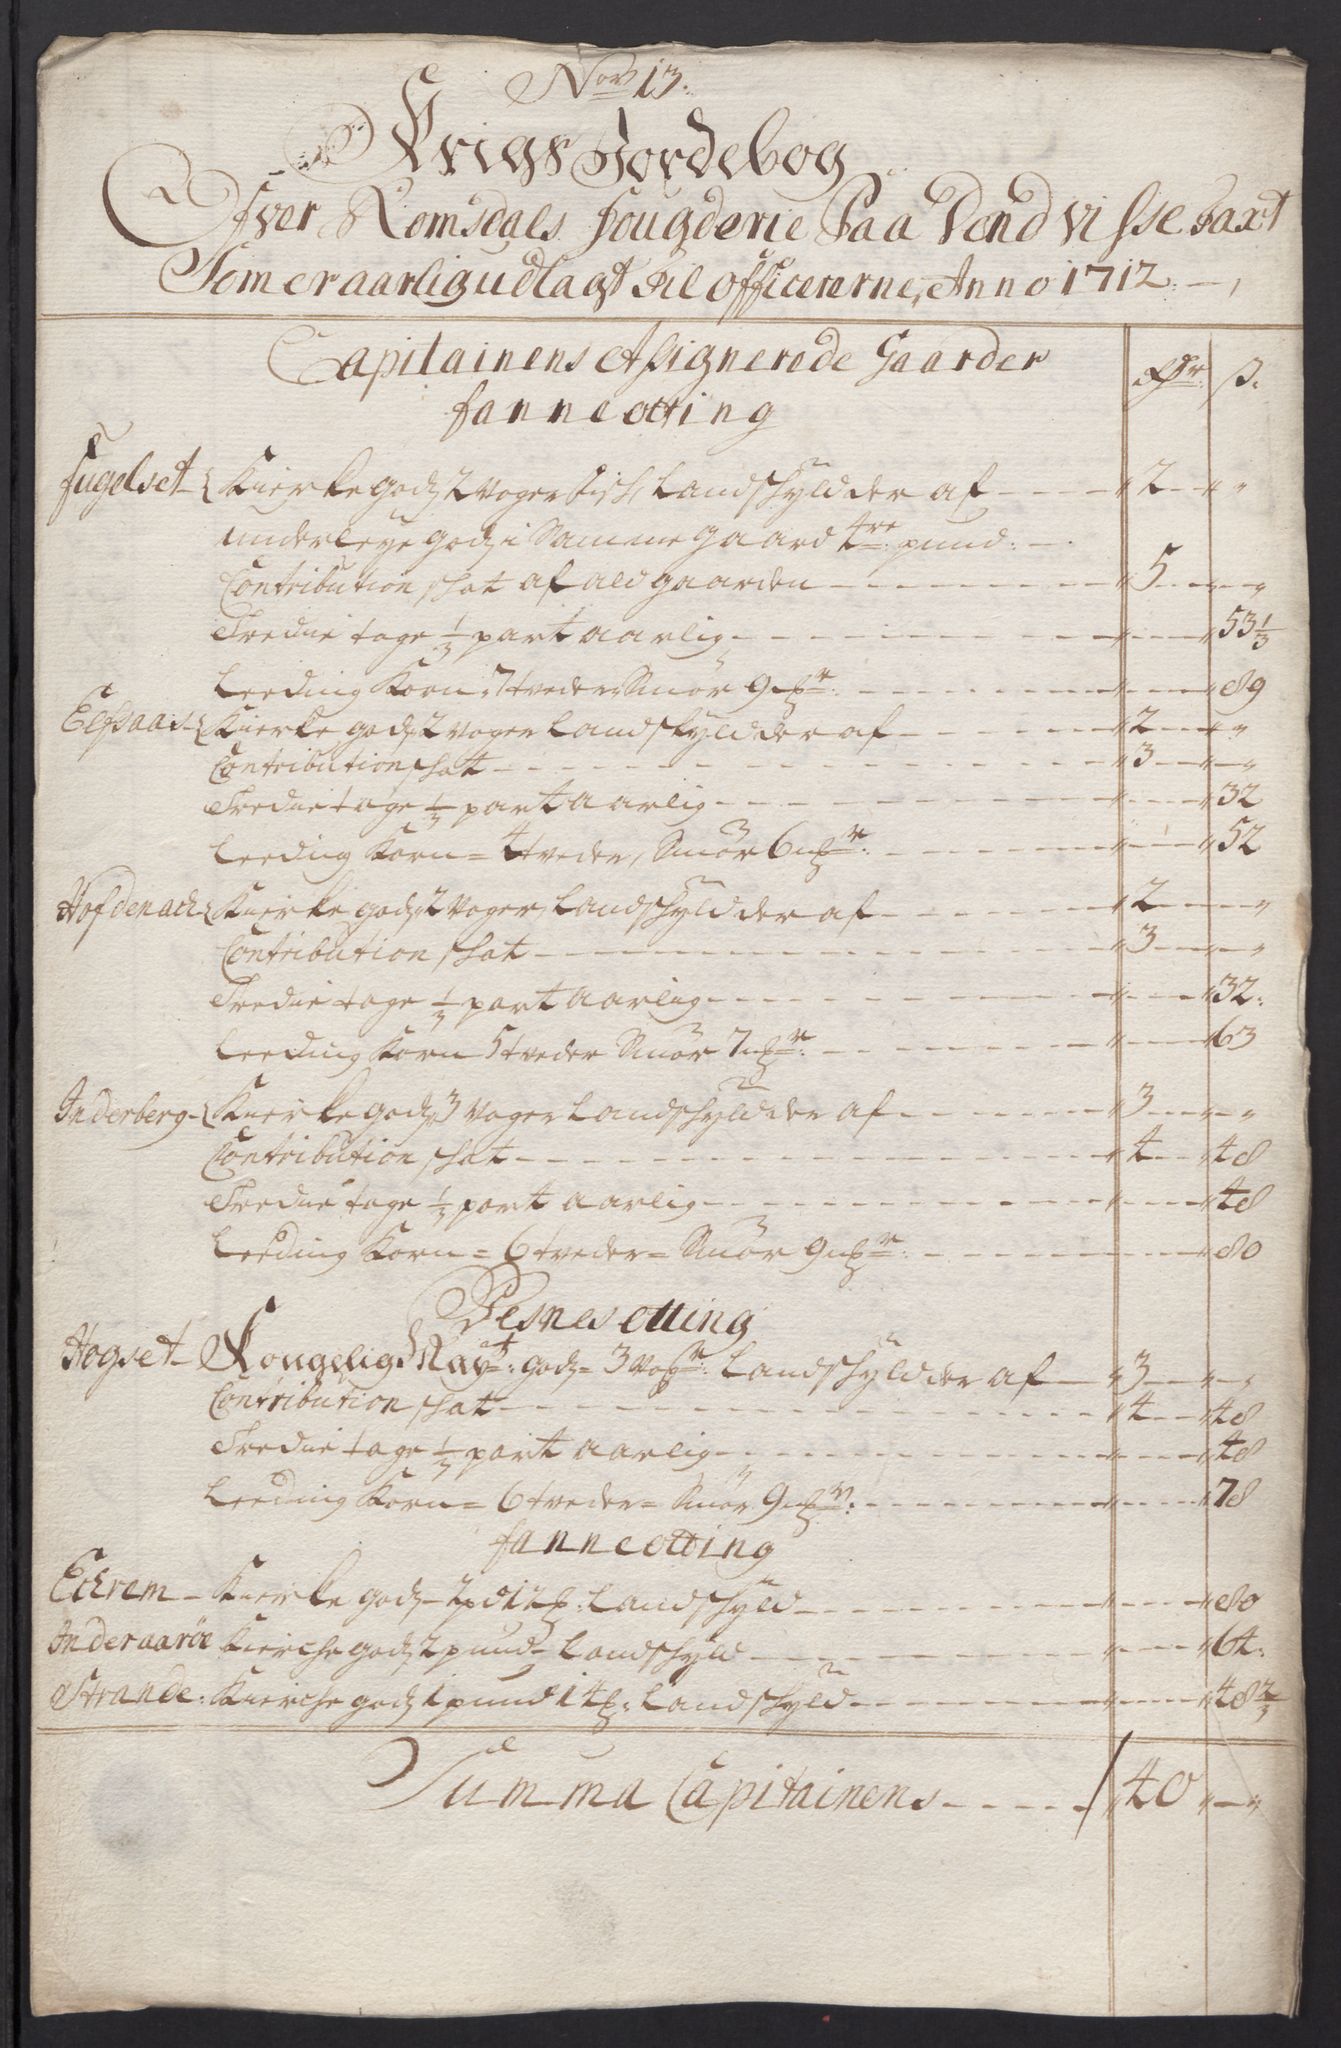 No 13.
Krigs Jordebog
Ofver Romsdals fougderie Paa Dend visse Taxt
Som er aarlig udlagt til officererne, Anno 1712.
Capitainens Assignerede Gaarder Rdr ß
fanne otting
fugelset Kierke godz 2 Voger fisk, Landschyld der af 2
underleye godz i Samme gaard 4re pund.
Contribution schat af ald gaarden 5
Tredie tage 1/3 part aarlig 53 1/3
Leeding Korn 7 tveder Smör 9 mkr 89
Elfsaas Kierke godz 2 Voger Landskyld der af 2
Contribution schat 3
Tredie tage 1/3 part aarlig 32
Leeding Korn = 4 tveder, Smör 6 mkr 52
Hofdenach Kierke godz 2 Voger Landschyld der af 2
Contribution schat 3
Tredie tage 1/3 part aarlig 32
Leeding Korn 5 tveder Smör 7 mkr 63
Inderberg Kierke godz 3 Voger Landschyld der af 3
Contribution schat 4 48
Tredie tage 1/3 part aarlig 48
Leeding Korn = 6 tveder = Smör 9 mkr 80
Vesnes otting
Hogset Kongelig Mayt: godz = 3 Vogr: Landschyld der af 3
Contribution schat 4 48
Tredie tage 1/3 part aarlig 48
Leeding Korn = 6 tveder = Smör 9 mkr 78
fanne otting
Echrem Kierke godz 2 pd 12 mk: Landschyld 80
Inderaaröe Kierche godz 2 pund Landschyld 64
Strande: Kierche godz 1 pund 14 mk: Landschyld 48 2/3
Summa Capitainens 40